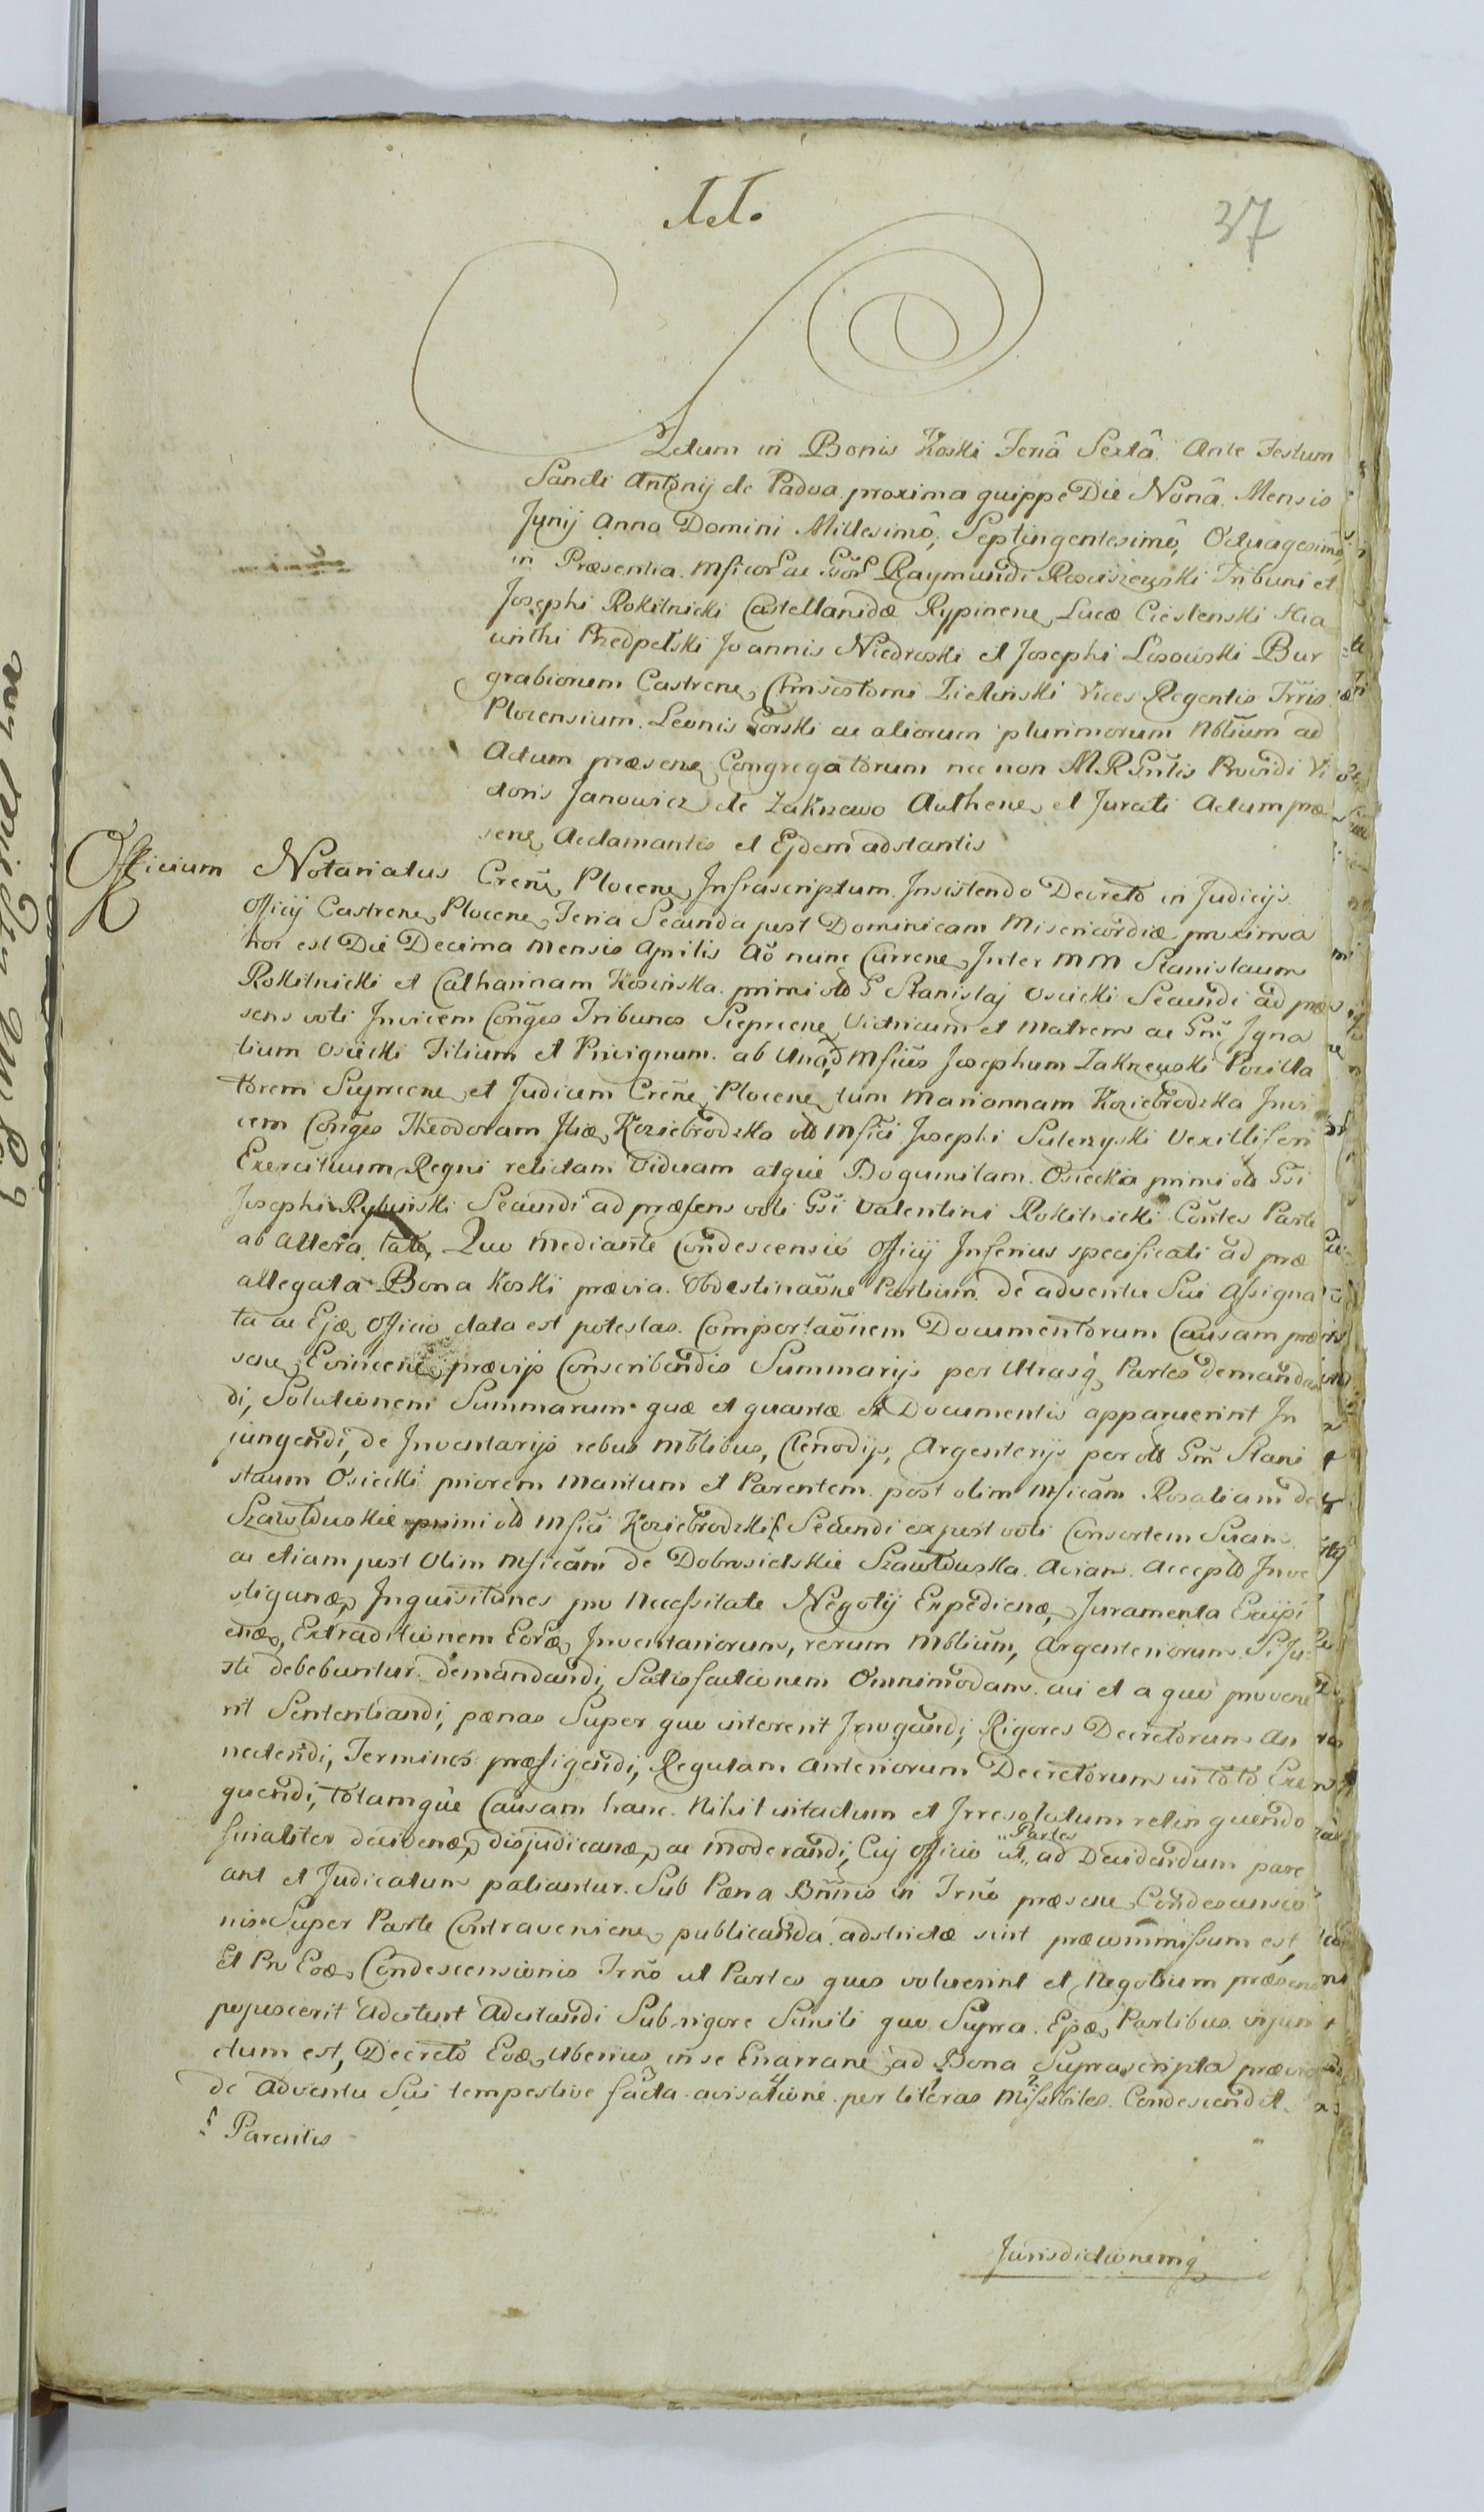 37
Actum in Bonis Koski Feriâ Sextâ Ante Festum
Sancti Antonij de Padua proxima quippe Die Nonâ Mensis
Junij Anno Domini Millesimô, Septingentesimô, Octuagesimô,
in Præsentia Raymundi Rosciszewski Tribuni et
Josephi Rokitnicki Castellanidæ Rypinen, Lucæ Cieslenski Hia
cinthi Przedpełski Joannis Niedroski et Josephi Losowski Bur
grabiorum Castren, Chrisostomi Zielinski Vices Regentis
Plocensium Leonis Gorski ac aliorum plurimorum Nblium ad
Actum præsen, Congregatorum nec non Providi Vi
ctoris Janowicz de Zakrzewo Authen, et Jurati Actum præ
sen, Acclamantis et Ejdem adstantis
Officium Notariatus Cren, Plocen, Infrascriptum Insistendo Decreto in Judicijs
Officij Castren, Plocen, Feria Secunda post Dominicam Misericordiæ proxima
hoc est Die Decima Mensis Aprilis Aô nunc Curren, Inter MM Stanislaum
Rokitnicki et Catharinam Kosinska primi olô G Stanislaj Osiecki Secundi ad præ
sens voti Invicem Conges Tribunos Sieprcen, Victricum et Matrem ac Gnu Igna
tium Osiecki Filium et Privignum ab Una, Mficus Josephum Zakrzewski Pocilla
torem Sieprcen, et Judicem Cren, Plocen, tum Mariannam Koziebrodzka Invi
cem Conges Theodoram Koziebrodzko olô Mfici Josephi Vexilliferi
Exercituum Regni relictam Viduam atque Bogumilam Osiecka primi olô Gsi
Josephi Rybinski Secundi ad præsens voti Gsi Valentini Rokitnicki Contes Parte
ab Altera lato, Quo Mediante Condescensio Officij Inferius specificati ad præ
allegata Bona Koski prævia Obdestinaône Partium de adventu Sui Assigna
ta ac Ejdæ, Officio data est potestas Comportaônem Documentorum Causam præ
sen, prævijs Conscribendis Summarijs per Utrasq, Partes demandan
di, Solutionem Summarum quæ et quantæ ex Documentis apparuerint In
jungendi, de Inventarijs rebus Mblibus, Clenodijs, Argenterijs per olô Gnu Stani
slaum Osiecki priorem Maritum et Parentem post olim Mficam Rosaliam de
Szawłowskie primi olô Mfici Koziebrodzki Secundi expost voti Consortem Suam
ac etiam post Olim Mficam de Dobrosielskie Szawłowska Aviam Accepto Inve
stigand, Inquisitiones pro Necessitate Negotij Expediend, Juramenta Excipi
end, Extraditionem Inventariorum, rerum Mblium, Argenteriorum Si Ju
ste debebuntur demandandi, Satisfactionem Omnimodam cui et a quo provene
rit Sententiandi, pænas Super quo intererit Irrogandi, Rigores Decretorum An
nectendi, Terminos præfigendi, Regulam Anteriorum Decretorum in toto Exe
quendi, totamque Causam hanc Nihil intactum et Irresolutum relinquendo
finaliter decidend, disjudicand, ac moderandi, Cuj Officio ut „Partes„ ad Decidendum pare
ant et Judicatum patiantur Sub Pæna Bnnis in Trno præsen, Condescensio
nis Super Parte Contravenien, publicanda adstrictæ sint præcommissum est,
Et Pro Condescensionis Trno ut Partes quos voluerint et Negotium præsens
poposcerit Adcitent Adcitandi Sub rigore Simili quo Supra Partibus injun
ctum est, Decreto Uberius in se Enarrane ad Bona Suprascripta prævia
de Adventu Sui tempestive facta avisatione per literas Missibiles Condescendit
Parentis
Jurisdictionemq